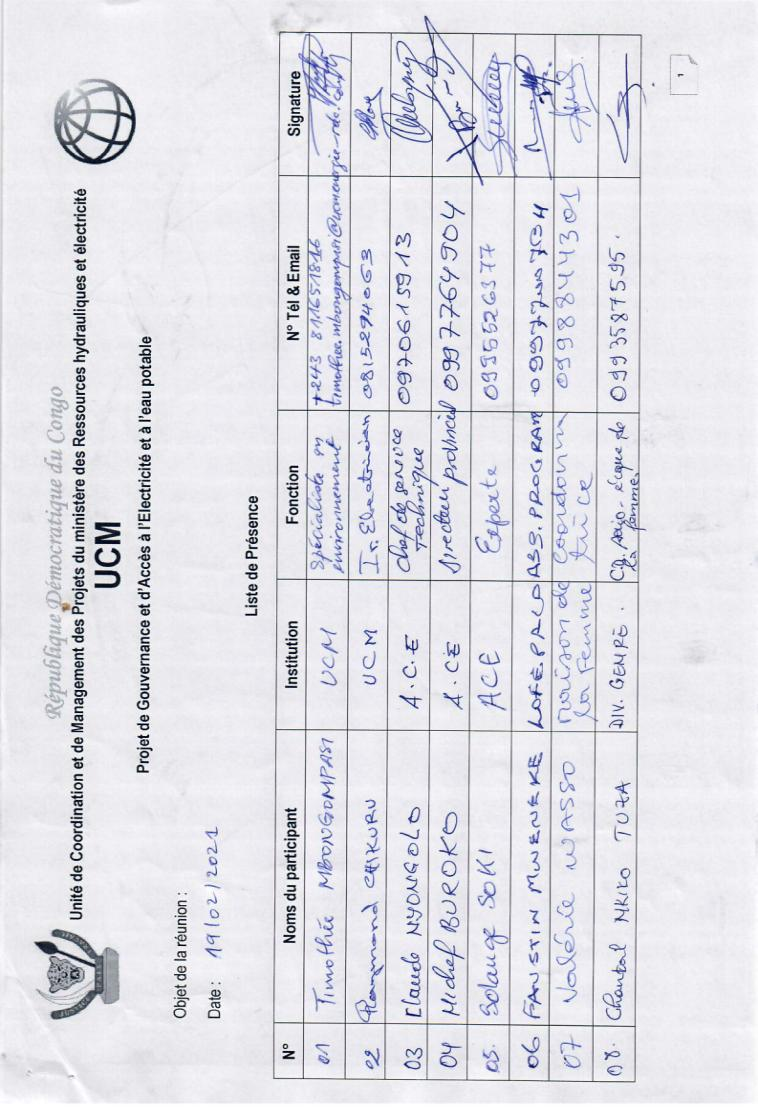 République Démocratique du Congo
Unité de Coordination et de Management des Projets du ministère des Ressources hydrauliques et électricité
UCM
Projet de Gouvernance et d'Accès à l'Electricité et à l'eau potable
Objet de la réunion :
Date : 19/02/2021
Liste de Présence
N° Noms du participant Institution Fonction N° Tél & Email Signature
01 Timothée MBONGOMPASI UCM Spécialiste en environnement +243 811651816
02 Raymond CHIKURU UCM Ir. Electricien 0815294063
03 Claude NYONGOLO A.C.E Chef de service Technique 0970615913
04 Michel BUROKO A.CE Directeur provincial 0997764904
05. Solange SOKI ACE Experte 0995526377
06 FAUSTIN MWENEKE ASS. PROGRAM
07 Valérie WASSO Maison de la Femme Coordonna trice 0998844301
08. Chantal NKIKO TUZA DIV. GENRE. la femme. 0993587595.
1